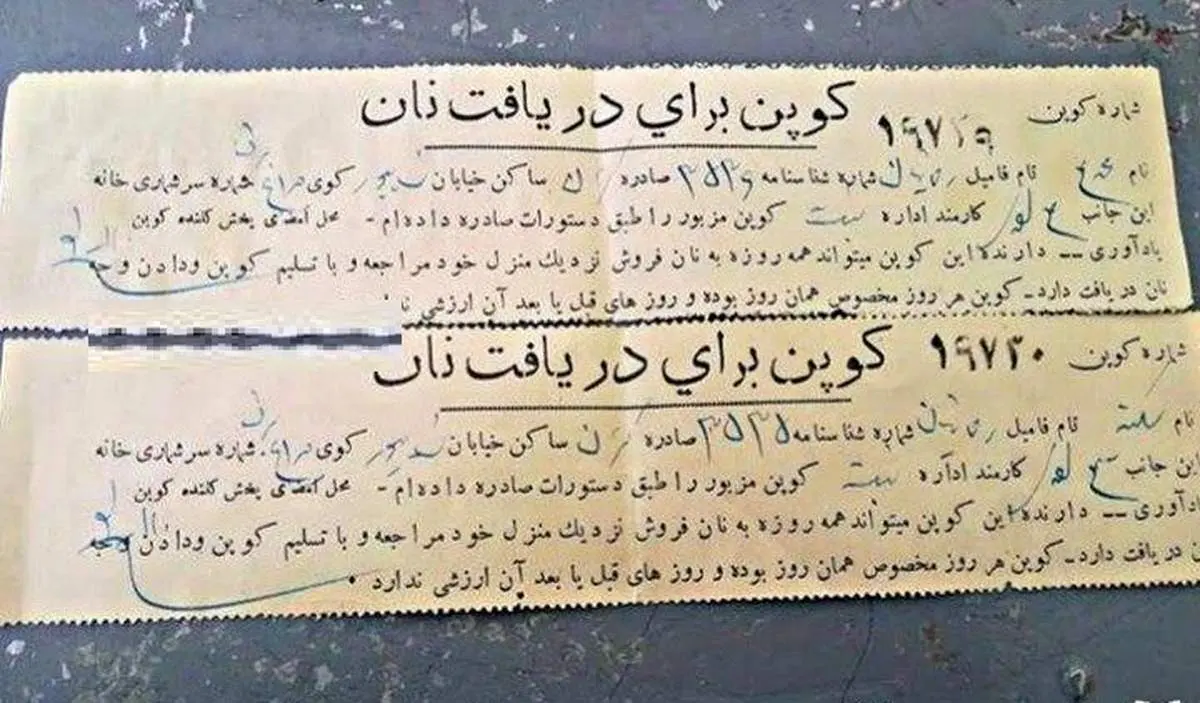 شماره کوپن
کوپن براي دریافت نان
نام فامیل شماره شناسنامه صادره ساکن خیابان کوی شماره سرشماری خانه
این جانب کارمند اداره کوپن مزبور را طبق دستورات صادره داده‌ام - محل امضای پخش کننده کوپن
یادآوری __ دارنده این کوپن میتواند همه روزه به نان فروش نزدیك منزل خود مراجعه و با تسلیم کوپن ودادن وجه
نان دریافت دارد - کوپن هر روز مخصوص همان روز بوده و روز های قبل یا بعد آن ارزشی
شماره کوپن ۱۹۷۳۰
کوپن براي دریافت نان
نام نام فامیل شماره شناسنامه صادره ساکن خیابان کوی شماره سرشماری خانه
این جانب کارمند ادآره کوپن مزبور را طبق دستورات صادره داده‌ام - محل امضای پخش کننده کوپن
یادآوری __ دارنده این کوپن میتواند همه روزه به نان فروش نزدیك منزل خود مراجعه و با تسلیم کوپن ودادن وجه
دریافت دارد - کوپن هر روز مخصوص همان روز بوده و روز های قبل یا بعد آن ارزشی ندارد